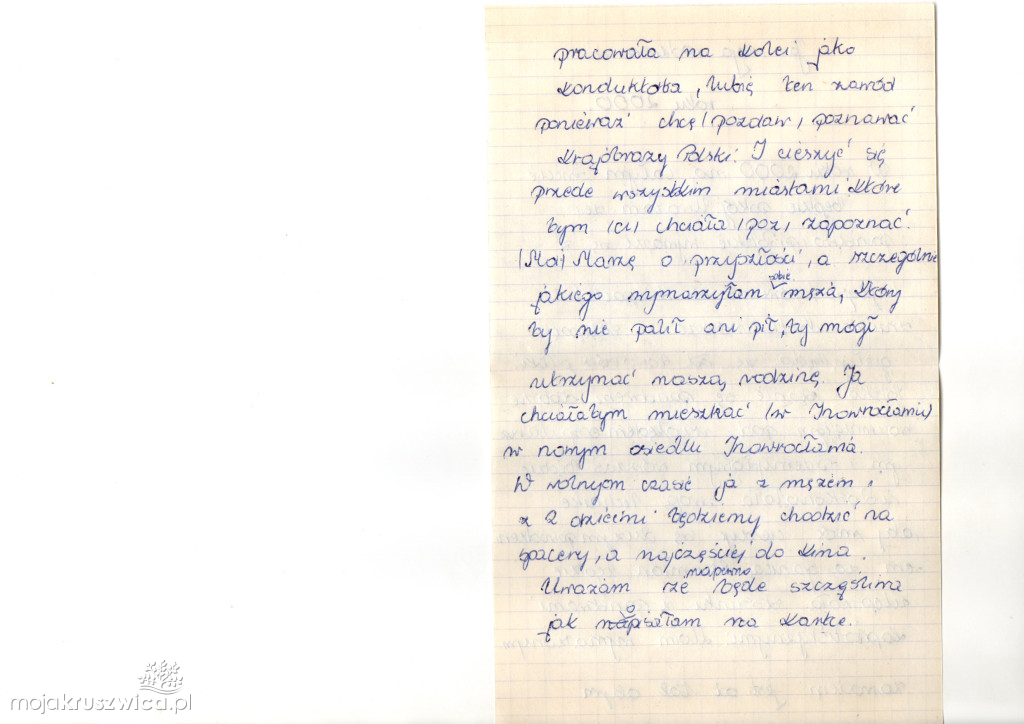 pracowała na kolei jako
konduktorka, lubię ten zawód
ponieważ chcę (pozdaw) poznawać
krajobrazy Polski. I cieszyć się
przede wszystkim miastami które
bym (ci) chciała (poz) zapoznać.
(Mai) Marzę o przyszłości, a szczególnie
jakiego wymarzyłam sobie męża, który
by nie palił ani pił, by mógł
utrzymać naszą rodzinę. Ja
chciałabym mieszkać (w Inowrocławiu)
w nowym osiedlu Inowrocławia.
W wolnym czasie ja z mężem i
z 2 dziećmi będziemy chodzić na
spacery, a najczęściej do kina.
Uważam że napewno będę szczęśliwa
jak na kartce.
mojakruszwica.pl